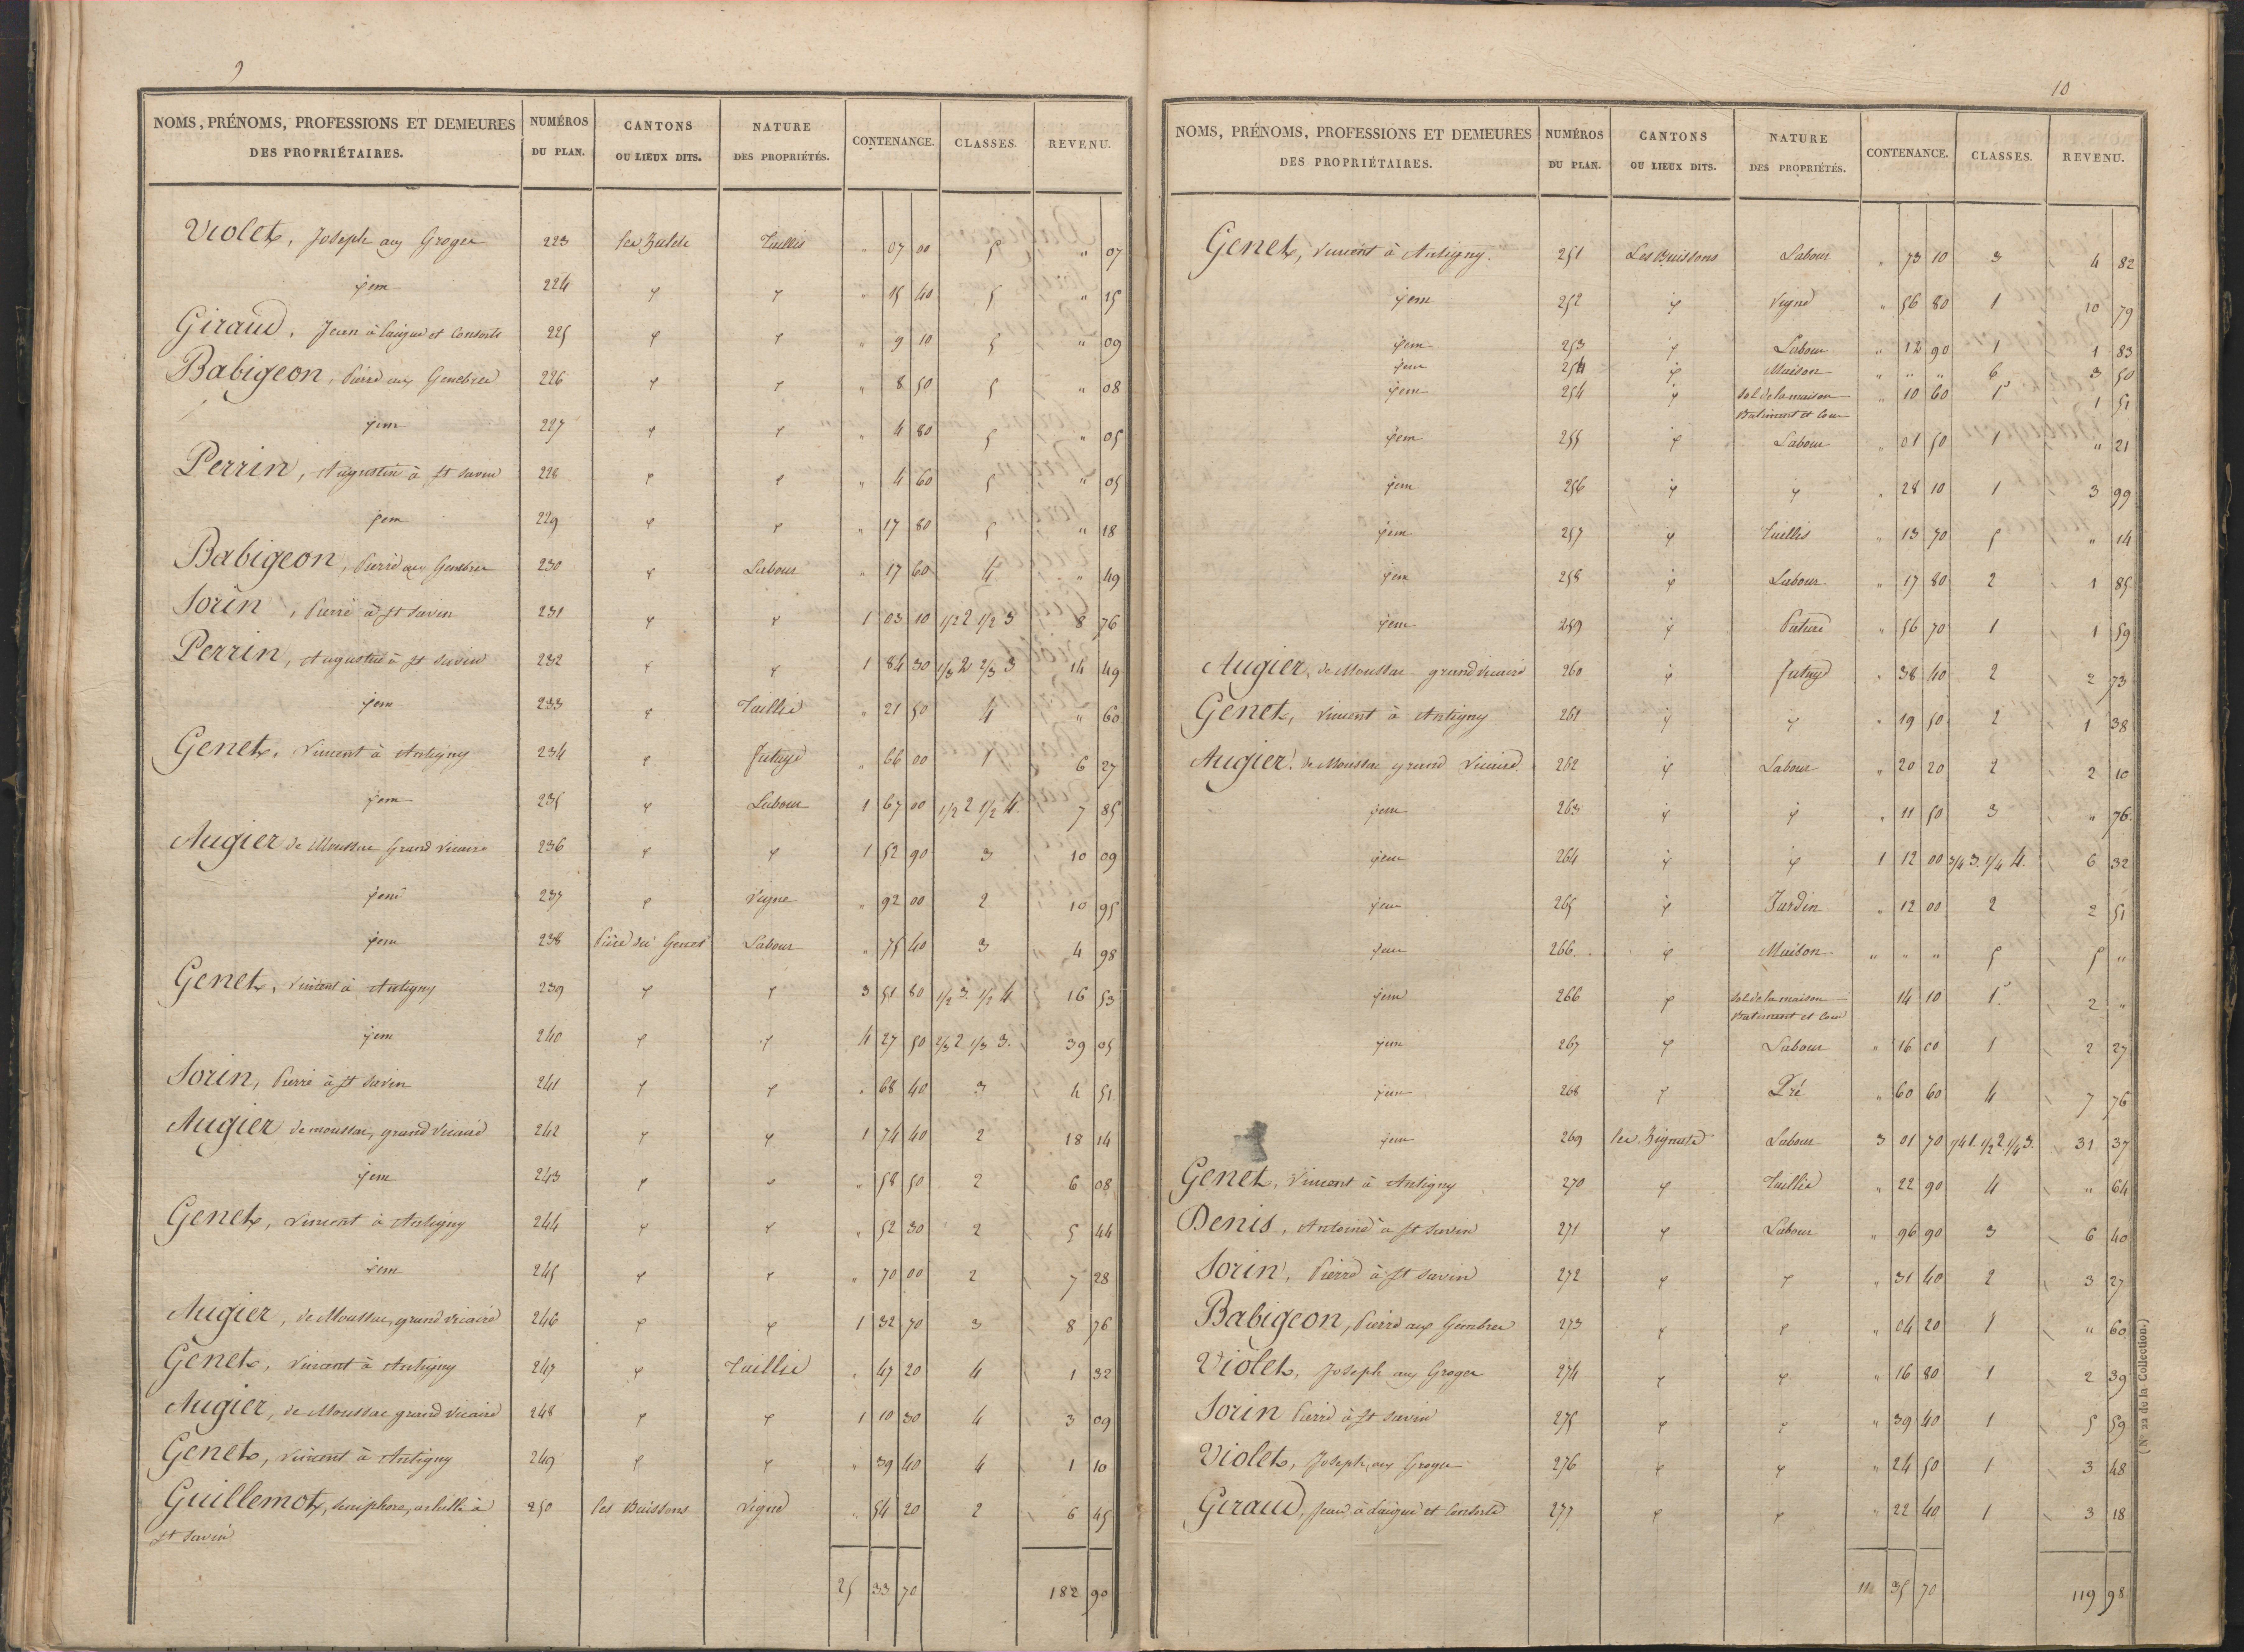 9
NOMS, PRÉNOMS, PROFESSIONS ET DEMEURES DES PROPRIÉTAIRES. NUMÉROS DU PLAN. CANTONS OU LIEUX DITS. NATURE DES PROPRIÉTÉS. CONTENANCE. CLASSES. REVENU.
Violet, Joseph aux Groges 223 Taillis " 07 00 5 " 07
ÿem 224 ÿ ÿ " 15 40 5 " 15
Giraud, Jean à Laigue et Consorts 225 ÿ ÿ " 9 10 5 " 09
Babigeon, Pierre aux Genebrés 226 ÿ ÿ " 8 50 5 " 08
ÿem 227 ÿ ÿ " 4 80 5 " 05
Perrin, Augustin à St Savin 228 ÿ ÿ " 4 60 5 " 05
ÿem 229 ÿ ÿ " 17 80 5 " 18
Babigeon, Pierre aux Genebrés 230 ÿ Labour " 17 60 4 " 49
Sorin, Pierre à St Savin 231 ÿ ÿ 1 03 10 1/2 2 1/2 3 8 76
Perrin, Augustin à St Savin 232 ÿ ÿ 1 84 30 1/3 2 2/3 3 14 49
ÿem 233 ÿ Taillis " 21 50 4 " 60
Genet, Vincent à Antigny 234 ÿ futaye " 66 00 1 6 27
ÿem 235 ÿ Labour 1 67 00 1/2 2 1/2 4. 7 85
Augier de Moussac Grand Vicaire 236 ÿ ÿ 1 52 90 3 10 09
ÿem 237 ÿ Vigne " 92 00 2 10 95
ÿem 238 Genet Labour " 75 40 3 4 98
Genet, Vincent à Antigny 239 ÿ ÿ 3 51 80 1/2 3. 1/2 4 16 53
ÿem 240 ÿ ÿ 4 27 50 2/3 2 1/3 3. 39 05
Sorin, Pierre à St Savin 241 ÿ ÿ " 68 40 3 4 51
Augier de moussac, grand Vicaire 242 ÿ ÿ 1 74 40 2 18 14
ÿem 243 ÿ ÿ " 58 50 2 6 08
Genet, Vincent à Antigny 244 ÿ ÿ " 52 30 2 5 44
ÿem 245 ÿ ÿ " 70 00 2 7 28
Augier, de Moussac, grand vicaire 246 ÿ ÿ 1 32 70 3 8 76
Genet, Vincent à Antigny 247 ÿ Taillis " 47 20 4 1 32
Augier, de Moussac grand Vicaire 248 ÿ ÿ 1 10 30 4 3 09
Genet, Vincent à Antigny 249 ÿ ÿ " 39 40 4 1 10
Guillemot, à 250 les Buissons Vigne " 54 20 2 6 45
St Savin
25 33 70 182 90
10
NOMS, PRÉNOMS, PROFESSIONS ET DEMEURES DES PROPRIÉTAIRES. NUMÉROS DU PLAN. CANTONS OU LIEUX DITS. NATURE DES PROPRIÉTÉS. CONTENANCE. CLASSES. REVENU.
Genet, Vincent à Antigny. 251 Les Buissons Labour " 73 10 3 4 82
ÿem 252 ÿ Vigne " 56 80 1 10 79
ÿem 253 ÿ Labour " 12 90 1 1 83
ÿem 254 ÿ Maison " " " 6 3 50
ÿem 254 ÿ sol de la maison " 10 60 1 1 51
Batiment et Cour
ÿem 255 ÿ Labour " 01 50 1 " 21
ÿem 256 ÿ ÿ " 28 10 1 3 99
ÿem 257 ÿ Taillis " 13 70 5 " 14
ÿem 258 ÿ Labour " 17 80 2 1 85
ÿem 259 ÿ Pature " 56 70 1 1 59
Augier, de Moussac grand vicaire 260 ÿ futaye " 38 40 2 2 73
Genet, Vincent à Antigny 261 ÿ ÿ " 19 50 2 1 38
Augier. de Moussac grand Vicaire 262 ÿ Labour " 20 20 2 2 10
ÿem 263 ÿ ÿ " 11 50 3 " 76
ÿem 264 ÿ ÿ 1 12 00 3/4 3. 1/4 4. 6 32
ÿem 265 ÿ Jardin " 12 00 2 2 51
ÿem 266 ÿ Maison " " " 5 5 "
ÿem 266 ÿ sol de la maison 14 10 1 2 "
Batiment et Cour
ÿem 267 ÿ Labour " 16 00 1 2 27
ÿem 268 ÿ Pré " 60 60 4 7 76
ÿem 269 Labour 3 01 70 1/4 1. 1/2 2. 1/4 3. 31 37
Genet, Vincent à Antigny 270 ÿ Taillis " 22 90 4 " 64
Denis, Antoine à St Savin 271 ÿ Labour " 96 90 3 6 40
Sorin, Pierre à St Savin 272 ÿ ÿ " 31 40 2 3 27
Babigeon, Pierre aux Genebrés 273 ÿ ÿ " 04 20 1 " 60
Violet, Joseph aux Groges 274 ÿ ÿ " 16 80 1 2 39
Sorin Pierre à St Savin 275 ÿ ÿ " 39 40 1 5 59
Violet, Joseph, aux Groges 276 ÿ ÿ " 24 50 1 3 48
Giraud, Jean à Laigue et Consorts 277 ÿ ÿ " 22 40 1 3 18
11 35 70 119 98
(N° 22 de la Collection.)